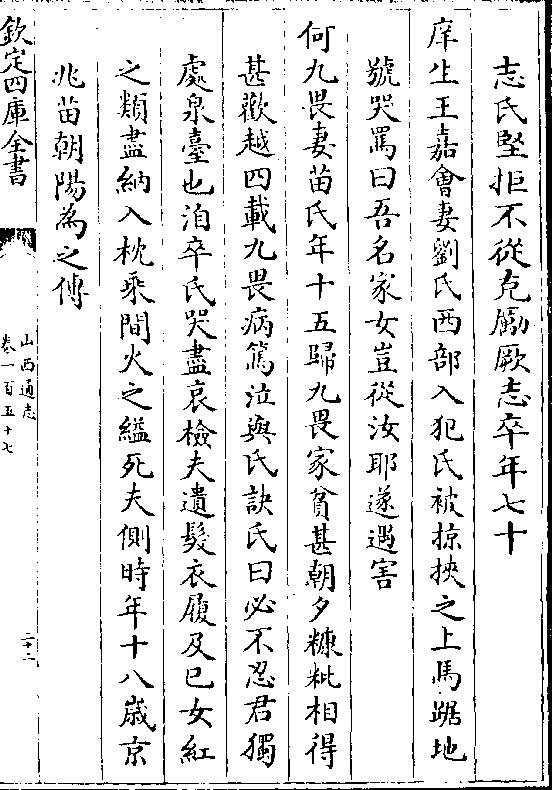 志氏堅拒不從克勵厥志卒年七十
庠生王嘉會妻劉氏西部入犯氏被掠挾之上馬踞地
號哭罵曰吾名家女豈從汝耶遂遇害
何九畏妻苗氏年十五歸九畏家貧甚朝夕糠粃相得
甚歡越四載九畏病篤泣與氏訣氏曰必不忍君獨
處泉臺也洎卒氏哭盡哀檢夫遺髮衣履及已女紅
之類盡納入枕乘間火之縊死夫側時年十八歲京
兆苗朝陽為之傳
欽定四庫全書
山西通志
卷一百五十七
二十二